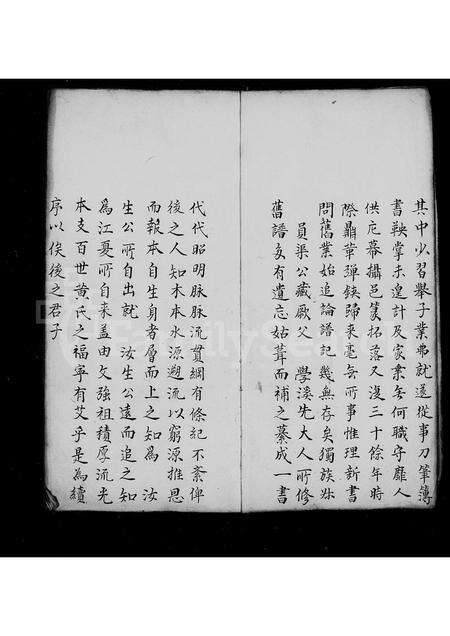 其中少習舉子業弗就遂從事刀筆簿
書鞅掌未遑計及家業無何職守靡人
供尨幕攝邑篆拓落又復三十餘年時
際鼎革彈鋏歸來毫無所事惟理新書
問舊業始追論譜記幾無存矣獨族
員渠公藏厥父 學溪先大人所修
舊譜多有遺忘姑葺而補之纂成一書
代代昭明脉脉流貫綱有條紀不紊俾
後之人知木本水源遡流以窮源推恩
而報本自生身者層而上之知為 汝
生公所自出就 汝生公遠而追之知
為江夏所自来盖由文強祖積厚流光
本支百世黄氏之福寧有艾乎是為續
序以俟後之君子